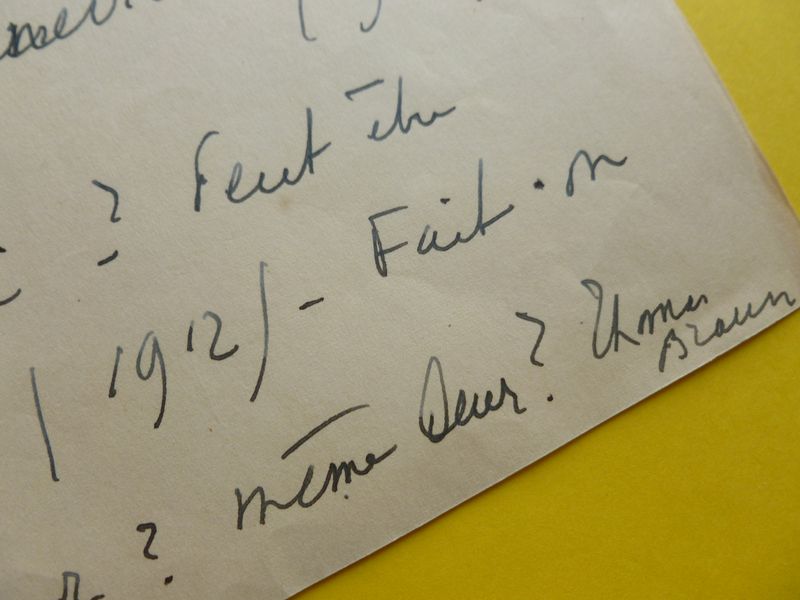 ? Peut être
( 1912 ) - Fait-on
? même deux? Thomas
Braun